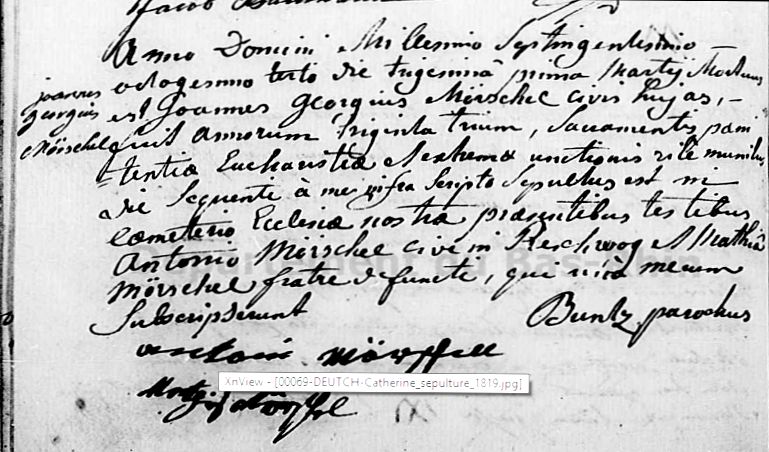 Jacob
Anno Domini Millesimo Septingentesimo
octogesimo tertio die trigesimâ prima Martij Mortuus
est Joannes Georgius Mörschel civis hujas, –
fuit annorum triginta trium, Sacramentis pœni
tentiæ Eucharistiæ et extremæ unctionis rite munitus
die sequente à me infra scripto Sepultus est in
cœmeterio Ecclesiæ nostræ præsentibus testibus
Antonio Mörschel cive in Reschwog et Mathiâ
Mörschel fratre defuncti, qui unà mecum
Subscripserunt Buntz parochus
joannes
georgius
Mörschel
Département du Bas-Rhin
antoni Mörschell
XnView - [00069-DEUTCH-Catherine_sepulture_1819.jpg]